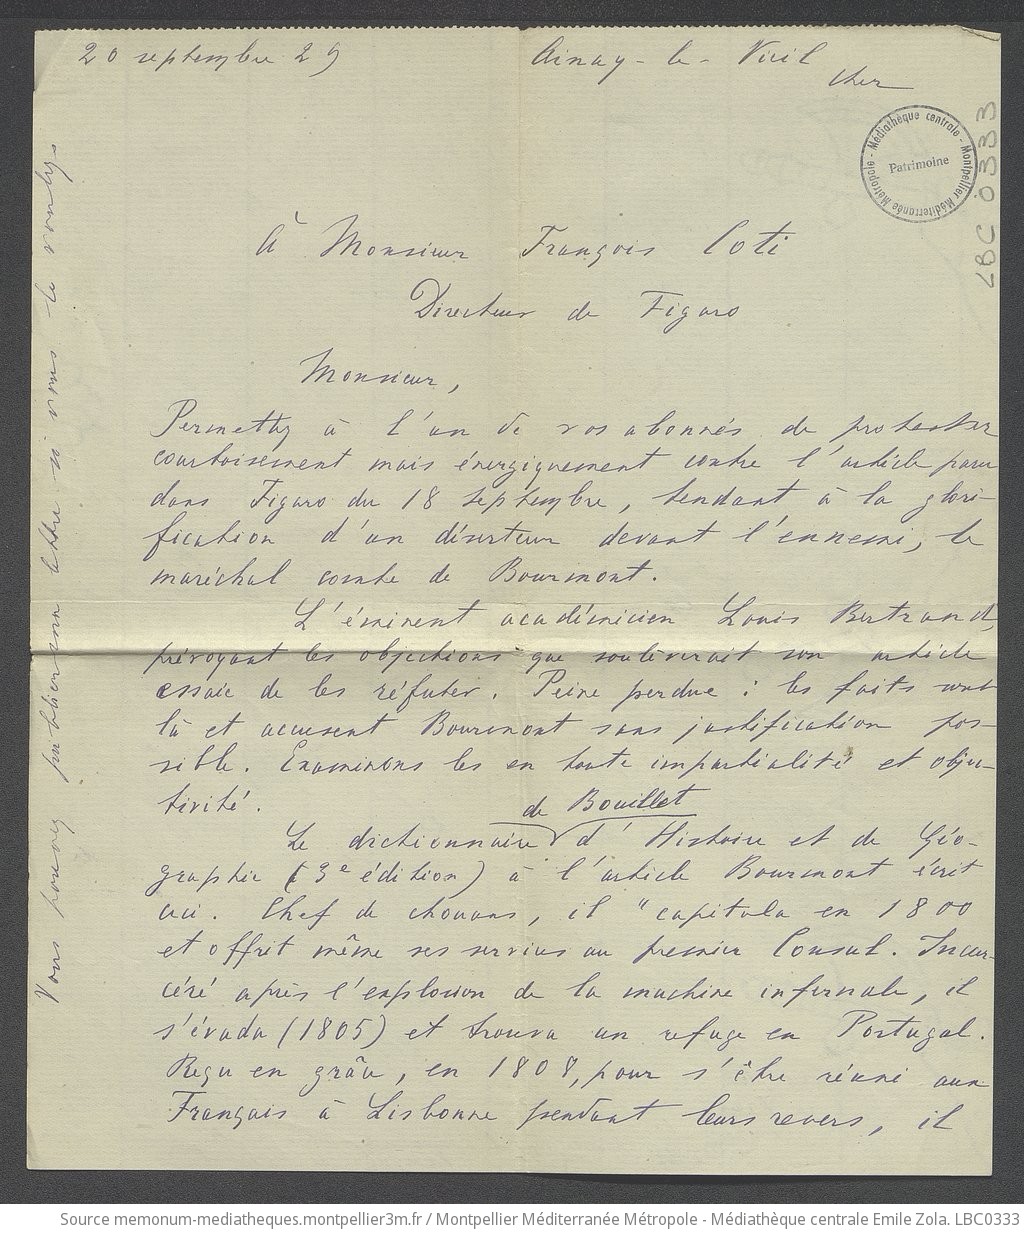 20 septembre 29
Ainay-le-Vieil
Cher
Médiathèque centrale - Montpellier Méditerranée Métropole -
Patrimoine
LBC 0333
À Monsieur François Coti
Directeur de Figaro
Monsieur,
Permettez à l'un de vos abonnés de protester
courtoisement mais énergiquement contre l'article paru
dans Figaro du 18 septembre, tendant à la glori-
fication d'un déserteur devant l'ennemi, le
maréchal comte de Bourmont.
L'éminent académicien Louis Bertrand,
prévoyant les objections que soulèverait son article
essaie de les réfuter. Peine perdue : les faits sont
là et accusent Bourmont sans justification pos-
sible. Examinons les en toute impartialité et objec-
tivité.
de Bouillet
Le dictionnaire d'Histoire et de Géo-
graphie (3e édition) à l'article Bourmont écrit
ceci. Chef de chouans, il "capitula en 1800
et offrit même ses services au premier Consul. Incar-
céré après l'explosion de la machine infernale, il
s'évada (1805) et trouva un refuge en Portugal.
Reçu en grâce, en 1808, pour s'être réuni aux
Français à Lisbonne pendant leurs revers, il
Vous pouvez publier ma lettre si vous le voulez
Source memonum-mediatheques.montpellier3m.fr / Montpellier Méditerranée Métropole - Médiathèque centrale Emile Zola. LBC0333